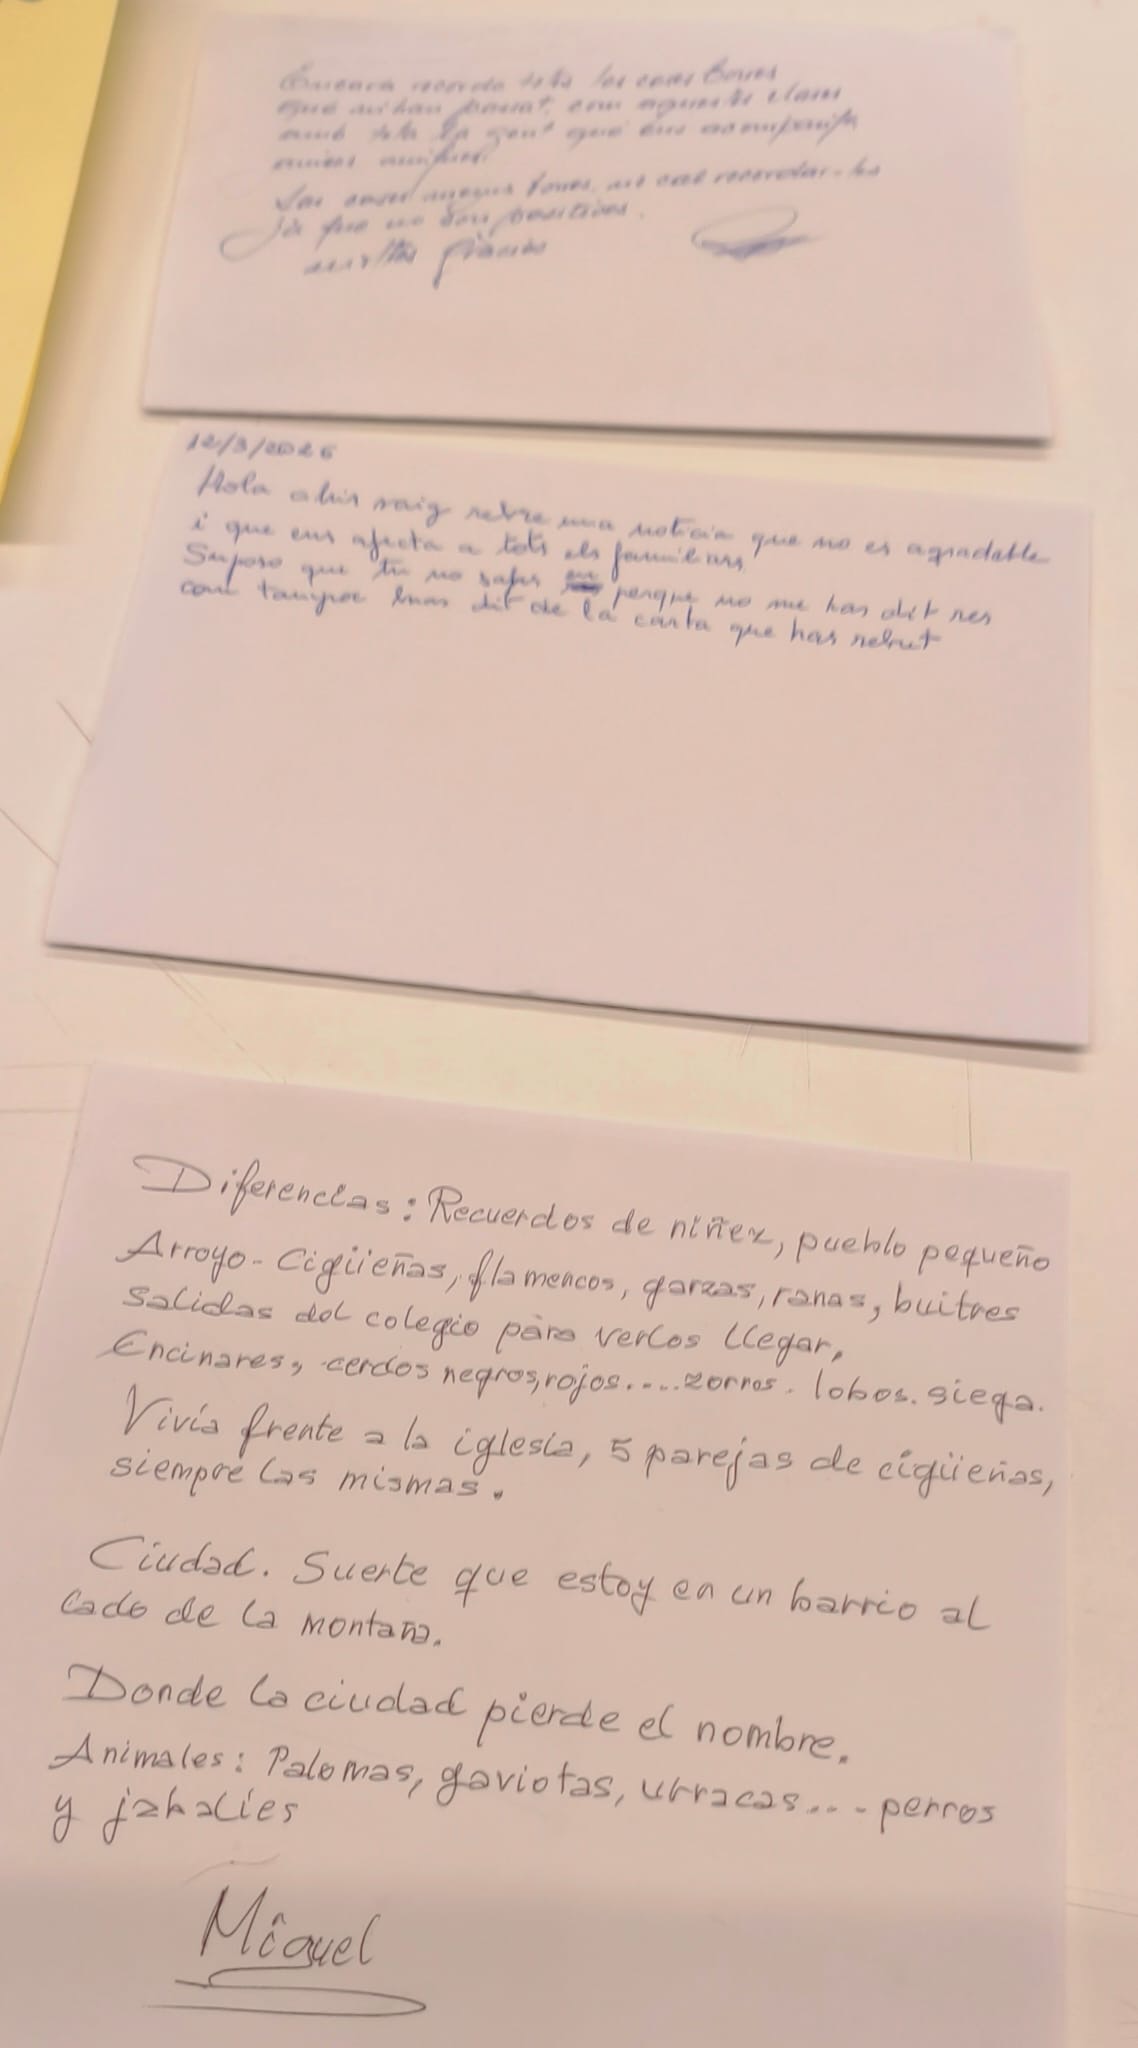 Encara recordo tots les coses bones
que m'han passat, com aquests
amb tota la gent que ens acompanya
no cal recordar-les
Ja que no son positives.
moltes gràcies
12/3/2025
Hola ahir vaig rebre una noticia que no es agradable
i que ens afecta a tots els familiars
Suposo que tu no sabs perque no me has dit res
com tampoc dit de la carta que has rebut
Diferencias: Recuerdos de niñez, pueblo pequeño
Arroyo - Cigüeñas, flamencos, garzas, ranas, buitres
salidas del colegio para verlos llegar,
Encinares, cerdos negros, rojos.... zorros. lobos. siega.
Vivía frente a la iglesia, 5 parejas de cigüeñas,
siempre las mismas.
Ciudad. Suerte que estoy en un barrio al
lado de la montaña.
Donde la ciudad pierde el nombre.
Animales: Palomas, gaviotas, urracas... - perros
y jabalíes
Miguel